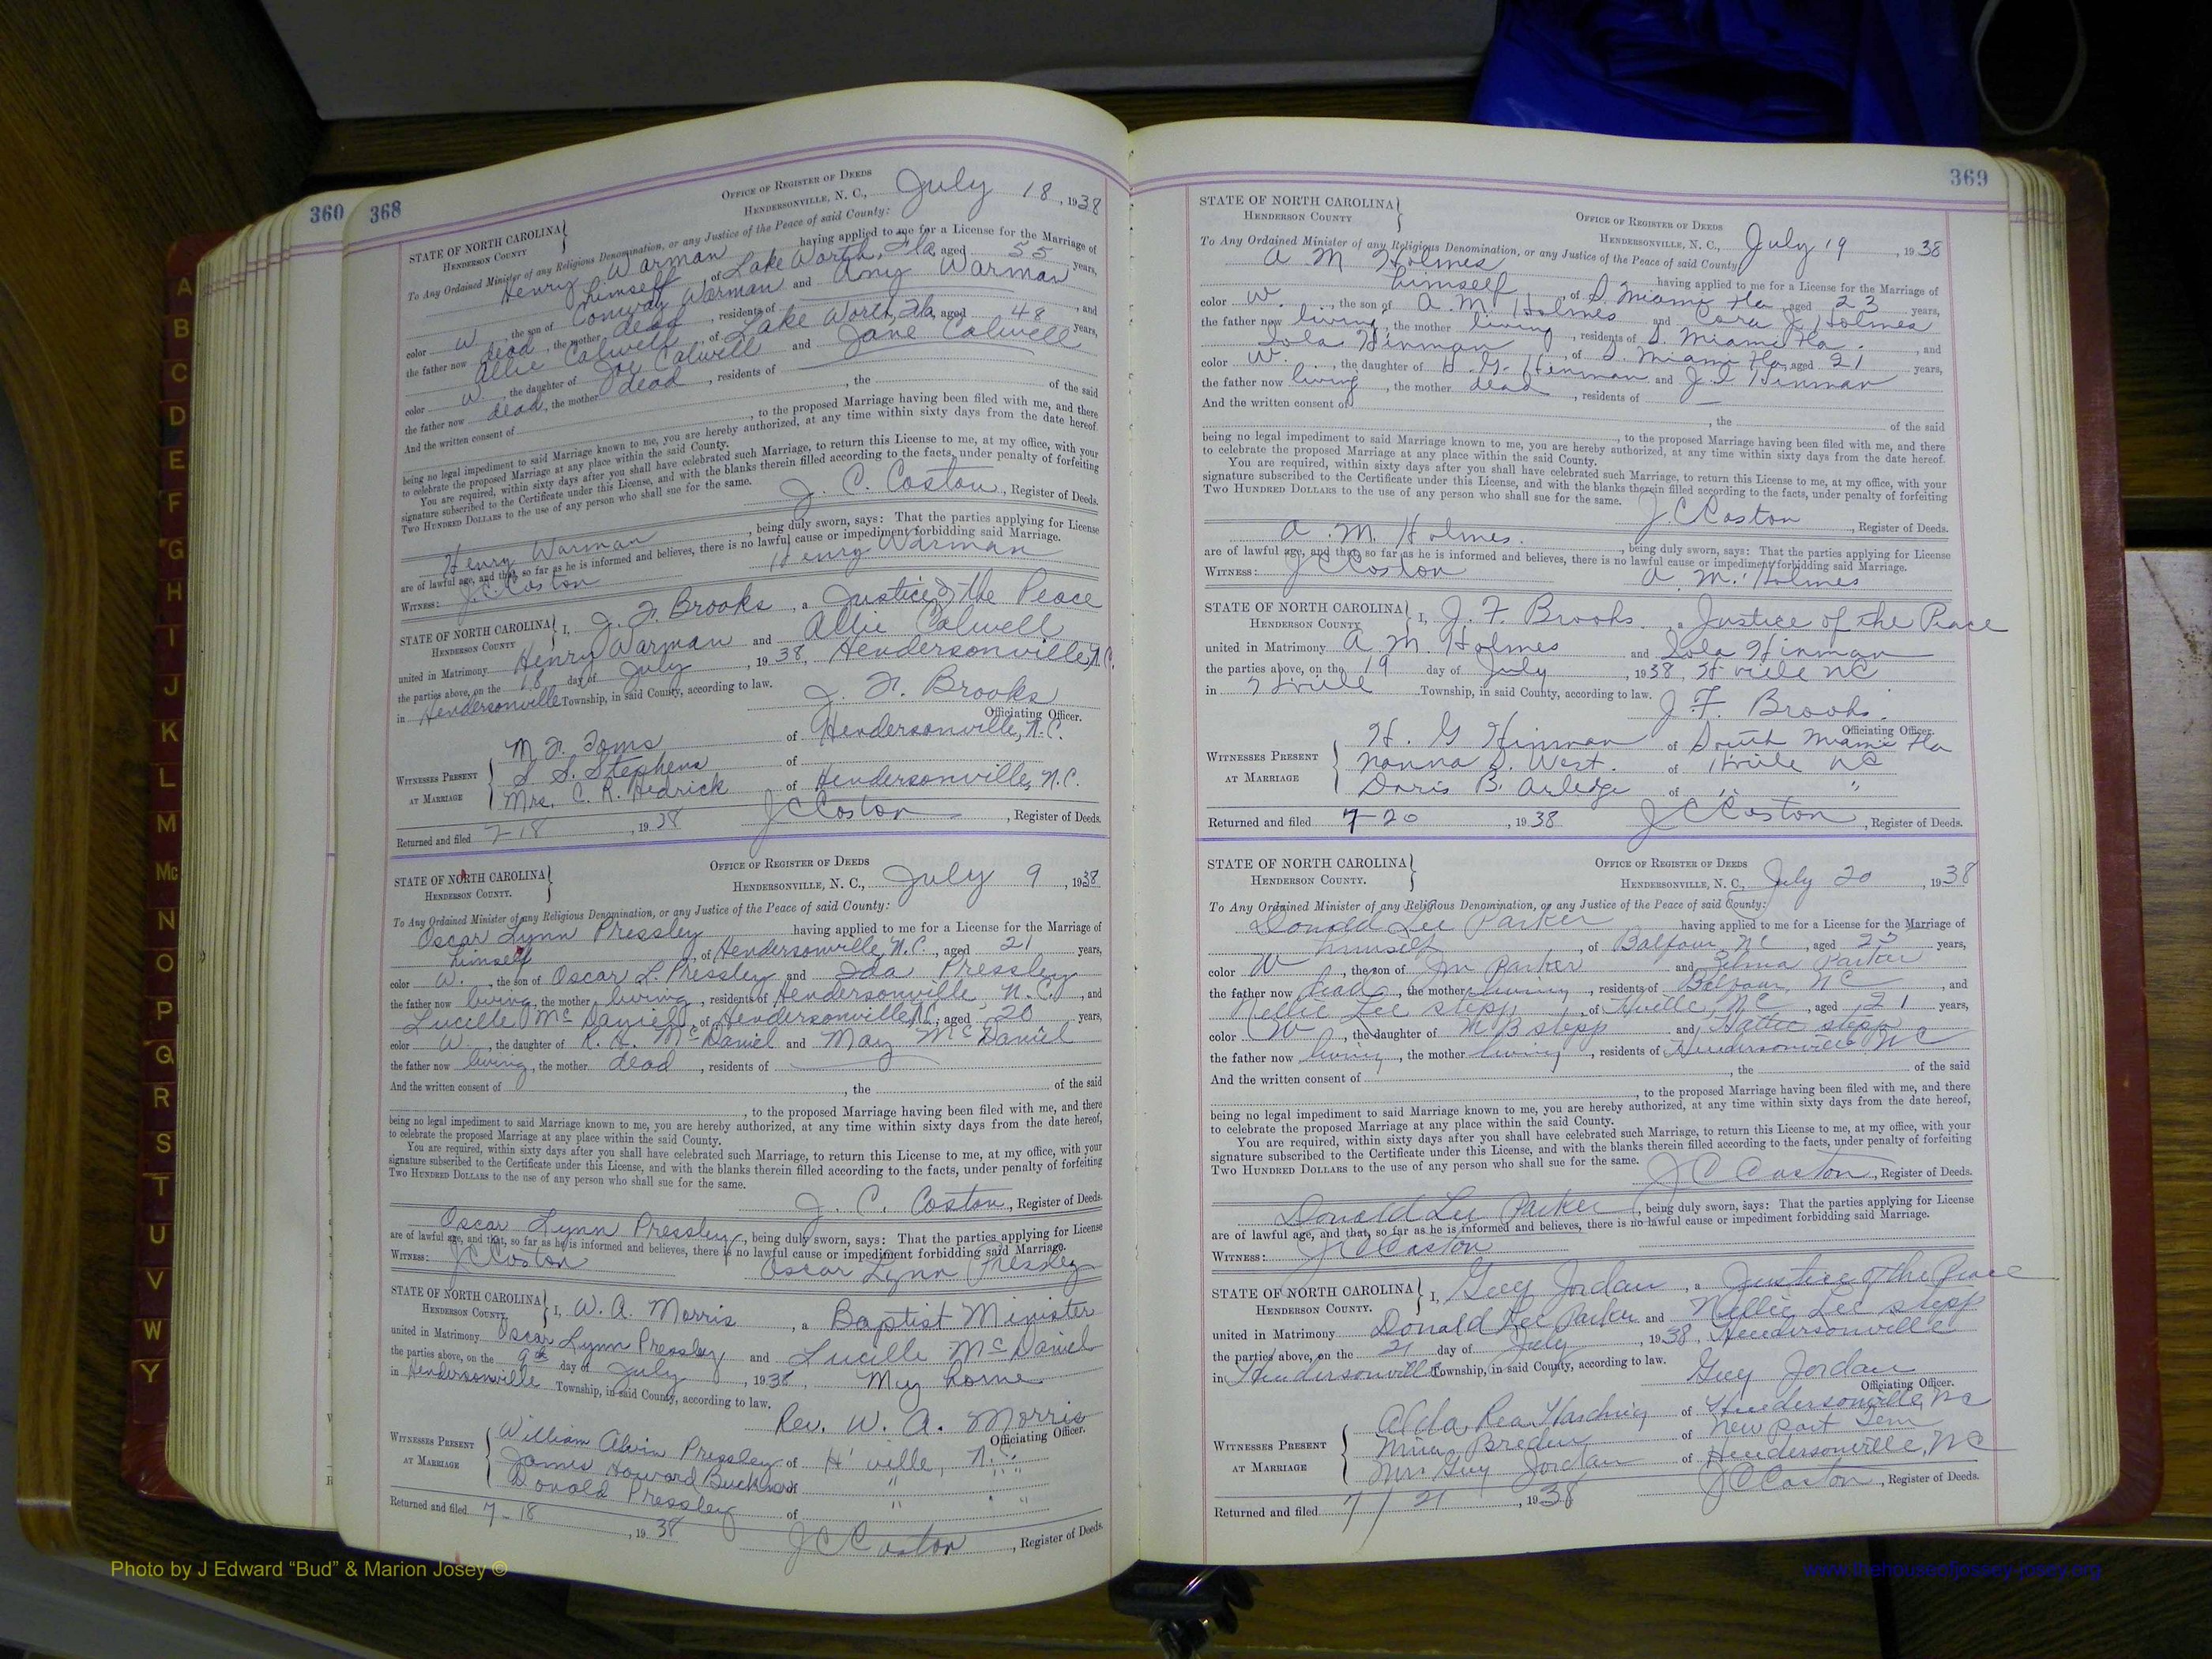 360
368
OFFICE OF REGISTER OF DEEDS
HENDERSONVILLE, N. C., July 18, 1938
STATE OF NORTH CAROLINA
HENDERSON COUNTY
To Any Ordained Minister of any Religious Denomination, or any Justice of the Peace of said County:
Henry Warman having applied to me for a License for the Marriage of
himself, of Lake Worth, Fla, aged 55 years,
color W., the son of Conway Warman and Any Warman
the father now dead, the mother dead, residents of , and
Allie Calwell, of Lake Worth, Fla, aged 48 years,
color W., the daughter of Joe Calwell and Jane Calwell
the father now dead, the mother dead, residents of
And the written consent of , the of the said
, to the proposed Marriage having been filed with me, and there
being no legal impediment to said Marriage known to me, you are hereby authorized, at any time within sixty days from the date hereof,
to celebrate the proposed Marriage at any place within the said County.
You are required, within sixty days after you shall have celebrated such Marriage, to return this License to me, at my office, with your
signature subscribed to the Certificate under this License, and with the blanks therein filled according to the facts, under penalty of forfeiting
TWO HUNDRED DOLLARS to the use of any person who shall sue for the same.
J. C. Coston, Register of Deeds.
Henry Warman, being duly sworn, says: That the parties applying for License
are of lawful age, and that, so far as he is informed and believes, there is no lawful cause or impediment forbidding said Marriage.
WITNESS: J. C. Coston Henry Warman
STATE OF NORTH CAROLINA I, J. F. Brooks, a Justice of the Peace
HENDERSON COUNTY
united in Matrimony Henry Warman and Allie Calwell
the parties above, on the 18 day of July, 1938, Hendersonville, N.C.
in Hendersonville Township, in said County, according to law.
J. F. Brooks
Officiating Officer.
WITNESSES PRESENT AT MARRIAGE
M. F. Toms of Hendersonville, N.C.
S. S. Stephens of
Mrs. C. R. Hedrick of Hendersonville, N.C.
Returned and filed 7-18, 1938 J C Coston, Register of Deeds.
STATE OF NORTH CAROLINA
HENDERSON COUNTY.
OFFICE OF REGISTER OF DEEDS
HENDERSONVILLE, N. C., July 9, 1938
To Any Ordained Minister of any Religious Denomination, or any Justice of the Peace of said County:
Oscar Lynn Pressley having applied to me for a License for the Marriage of
himself, of Hendersonville, N.C., aged 21 years,
color W., the son of Oscar L. Pressley and Ida Pressley
the father now living, the mother living, residents of Hendersonville, N.C., and
Lucille McDaniel, of Hendersonville, N.C., aged 20 years,
color W., the daughter of McDaniel and May McDaniel
the father now living, the mother dead, residents of
And the written consent of , the of the said
, to the proposed Marriage having been filed with me, and there
being no legal impediment to said Marriage known to me, you are hereby authorized, at any time within sixty days from the date hereof,
to celebrate the proposed Marriage at any place within the said County.
You are required, within sixty days after you shall have celebrated such Marriage, to return this License to me, at my office, with your
signature subscribed to the Certificate under this License, and with the blanks therein filled according to the facts, under penalty of forfeiting
TWO HUNDRED DOLLARS to the use of any person who shall sue for the same.
J. C. Coston, Register of Deeds.
Oscar Lynn Pressley, being duly sworn, says: That the parties applying for License
are of lawful age, and that, so far as he is informed and believes, there is no lawful cause or impediment forbidding said Marriage.
WITNESS: J C Coston Oscar Lynn Pressley
STATE OF NORTH CAROLINA I, W. A. Morris, a Baptist Minister
HENDERSON COUNTY
united in Matrimony Oscar Lynn Pressley and Lucille McDaniel
the parties above, on the 9th day of July, 1938, My home
in Hendersonville Township, in said County, according to law.
Rev. W. A. Morris
Officiating Officer.
WITNESSES PRESENT AT MARRIAGE
William Alvin Pressley of H'ville, N.C.
James Howard of " "
Donald Pressley of " "
Returned and filed 7-18, 1938 J C Coston, Register of Deeds.
369
STATE OF NORTH CAROLINA
HENDERSON COUNTY
OFFICE OF REGISTER OF DEEDS
HENDERSONVILLE, N. C., July 19, 1938
To Any Ordained Minister of any Religious Denomination, or any Justice of the Peace of said County:
A M Holmes having applied to me for a License for the Marriage of
himself, of S. Miami Fla, aged 23 years,
color W., the son of A. M. Holmes and Cora J. Holmes
the father now living, the mother living, residents of S. Miami Fla., and
Lola Hinman, of S. Miami Fla, aged 21 years,
color W., the daughter of H. G. Hinman and Hinman
the father now living, the mother dead, residents of
And the written consent of
, the of the said
, to the proposed Marriage having been filed with me, and there
being no legal impediment to said Marriage known to me, you are hereby authorized, at any time within sixty days from the date hereof.
to celebrate the proposed Marriage at any place within the said County.
You are required, within sixty days after you shall have celebrated such Marriage, to return this License to me, at my office, with your
signature subscribed to the Certificate under this License, and with the blanks therein filled according to the facts, under penalty of forfeiting
TWO HUNDRED DOLLARS to the use of any person who shall sue for the same.
J. C Coston, Register of Deeds.
A. M. Holmes., being duly sworn, says: That the parties applying for License
are of lawful age, and that, so far as he is informed and believes, there is no lawful cause or impediment forbidding said Marriage.
WITNESS: J C Coston A. M. Holmes
STATE OF NORTH CAROLINA I, J. F. Brooks., a Justice of the Peace
HENDERSON COUNTY
united in Matrimony A. M. Holmes and Lola Hinman
the parties above, on the 19 day of July, 1938, H'ville NC
in H'ville Township, in said County, according to law.
J. F. Brooks.
Officiating Officer.
WITNESSES PRESENT AT MARRIAGE
H. G Hinman of South Miami Fla
Nonna S. West. of H'ville NC
Doris B. Arledge of " "
Returned and filed 7-20, 1938 J C Coston, Register of Deeds.
STATE OF NORTH CAROLINA
HENDERSON COUNTY.
OFFICE OF REGISTER OF DEEDS
HENDERSONVILLE, N. C., July 20, 1938
To Any Ordained Minister of any Religious Denomination, or any Justice of the Peace of said County:
Donald Lee Parker having applied to me for a License for the Marriage of
himself, of Balfour, NC, aged 23 years,
color W, the son of Parker and Zelma Parker
the father now dead, the mother living, residents of Balfour, NC, and
Nellie Lee Stepp, of H'ville, NC, aged 21 years,
color W, the daughter of M B Stepp and Hattie Stepp
the father now living, the mother living, residents of Hendersonville NC
And the written consent of , the of the said
, to the proposed Marriage having been filed with me, and there
being no legal impediment to said Marriage known to me, you are hereby authorized, at any time within sixty days from the date hereof,
to celebrate the proposed Marriage at any place within the said County.
You are required, within sixty days after you shall have celebrated such Marriage, to return this License to me, at my office, with your
signature subscribed to the Certificate under this License, and with the blanks therein filled according to the facts, under penalty of forfeiting
TWO HUNDRED DOLLARS to the use of any person who shall sue for the same.
J C Coston, Register of Deeds.
Donald Lee Parker, being duly sworn, says: That the parties applying for License
are of lawful age, and that, so far as he is informed and believes, there is no lawful cause or impediment forbidding said Marriage.
WITNESS: J C Coston
STATE OF NORTH CAROLINA I, Guy Jordan, a Justice of the Peace
HENDERSON COUNTY.
united in Matrimony Donald Lee Parker and Nellie Lee Stepp
the parties above, on the 21 day of July, 1938, Hendersonville
in Hendersonville Township, in said County, according to law.
Guy Jordan
Officiating Officer.
WITNESSES PRESENT AT MARRIAGE
Alda Rea of Hendersonville, NC
of New Port Tenn
Mrs Guy Jordan of Hendersonville, NC
Returned and filed 7/21, 1938 J C Coston, Register of Deeds.
A
B
C
D
E
F
G
H
I
J
K
L
M
Mc
N
O
P
Q
R
S
T
U
V
W
Y
Photo by J Edward “Bud” & Marion Josey ©
www.thehouseofjossey-josey.org